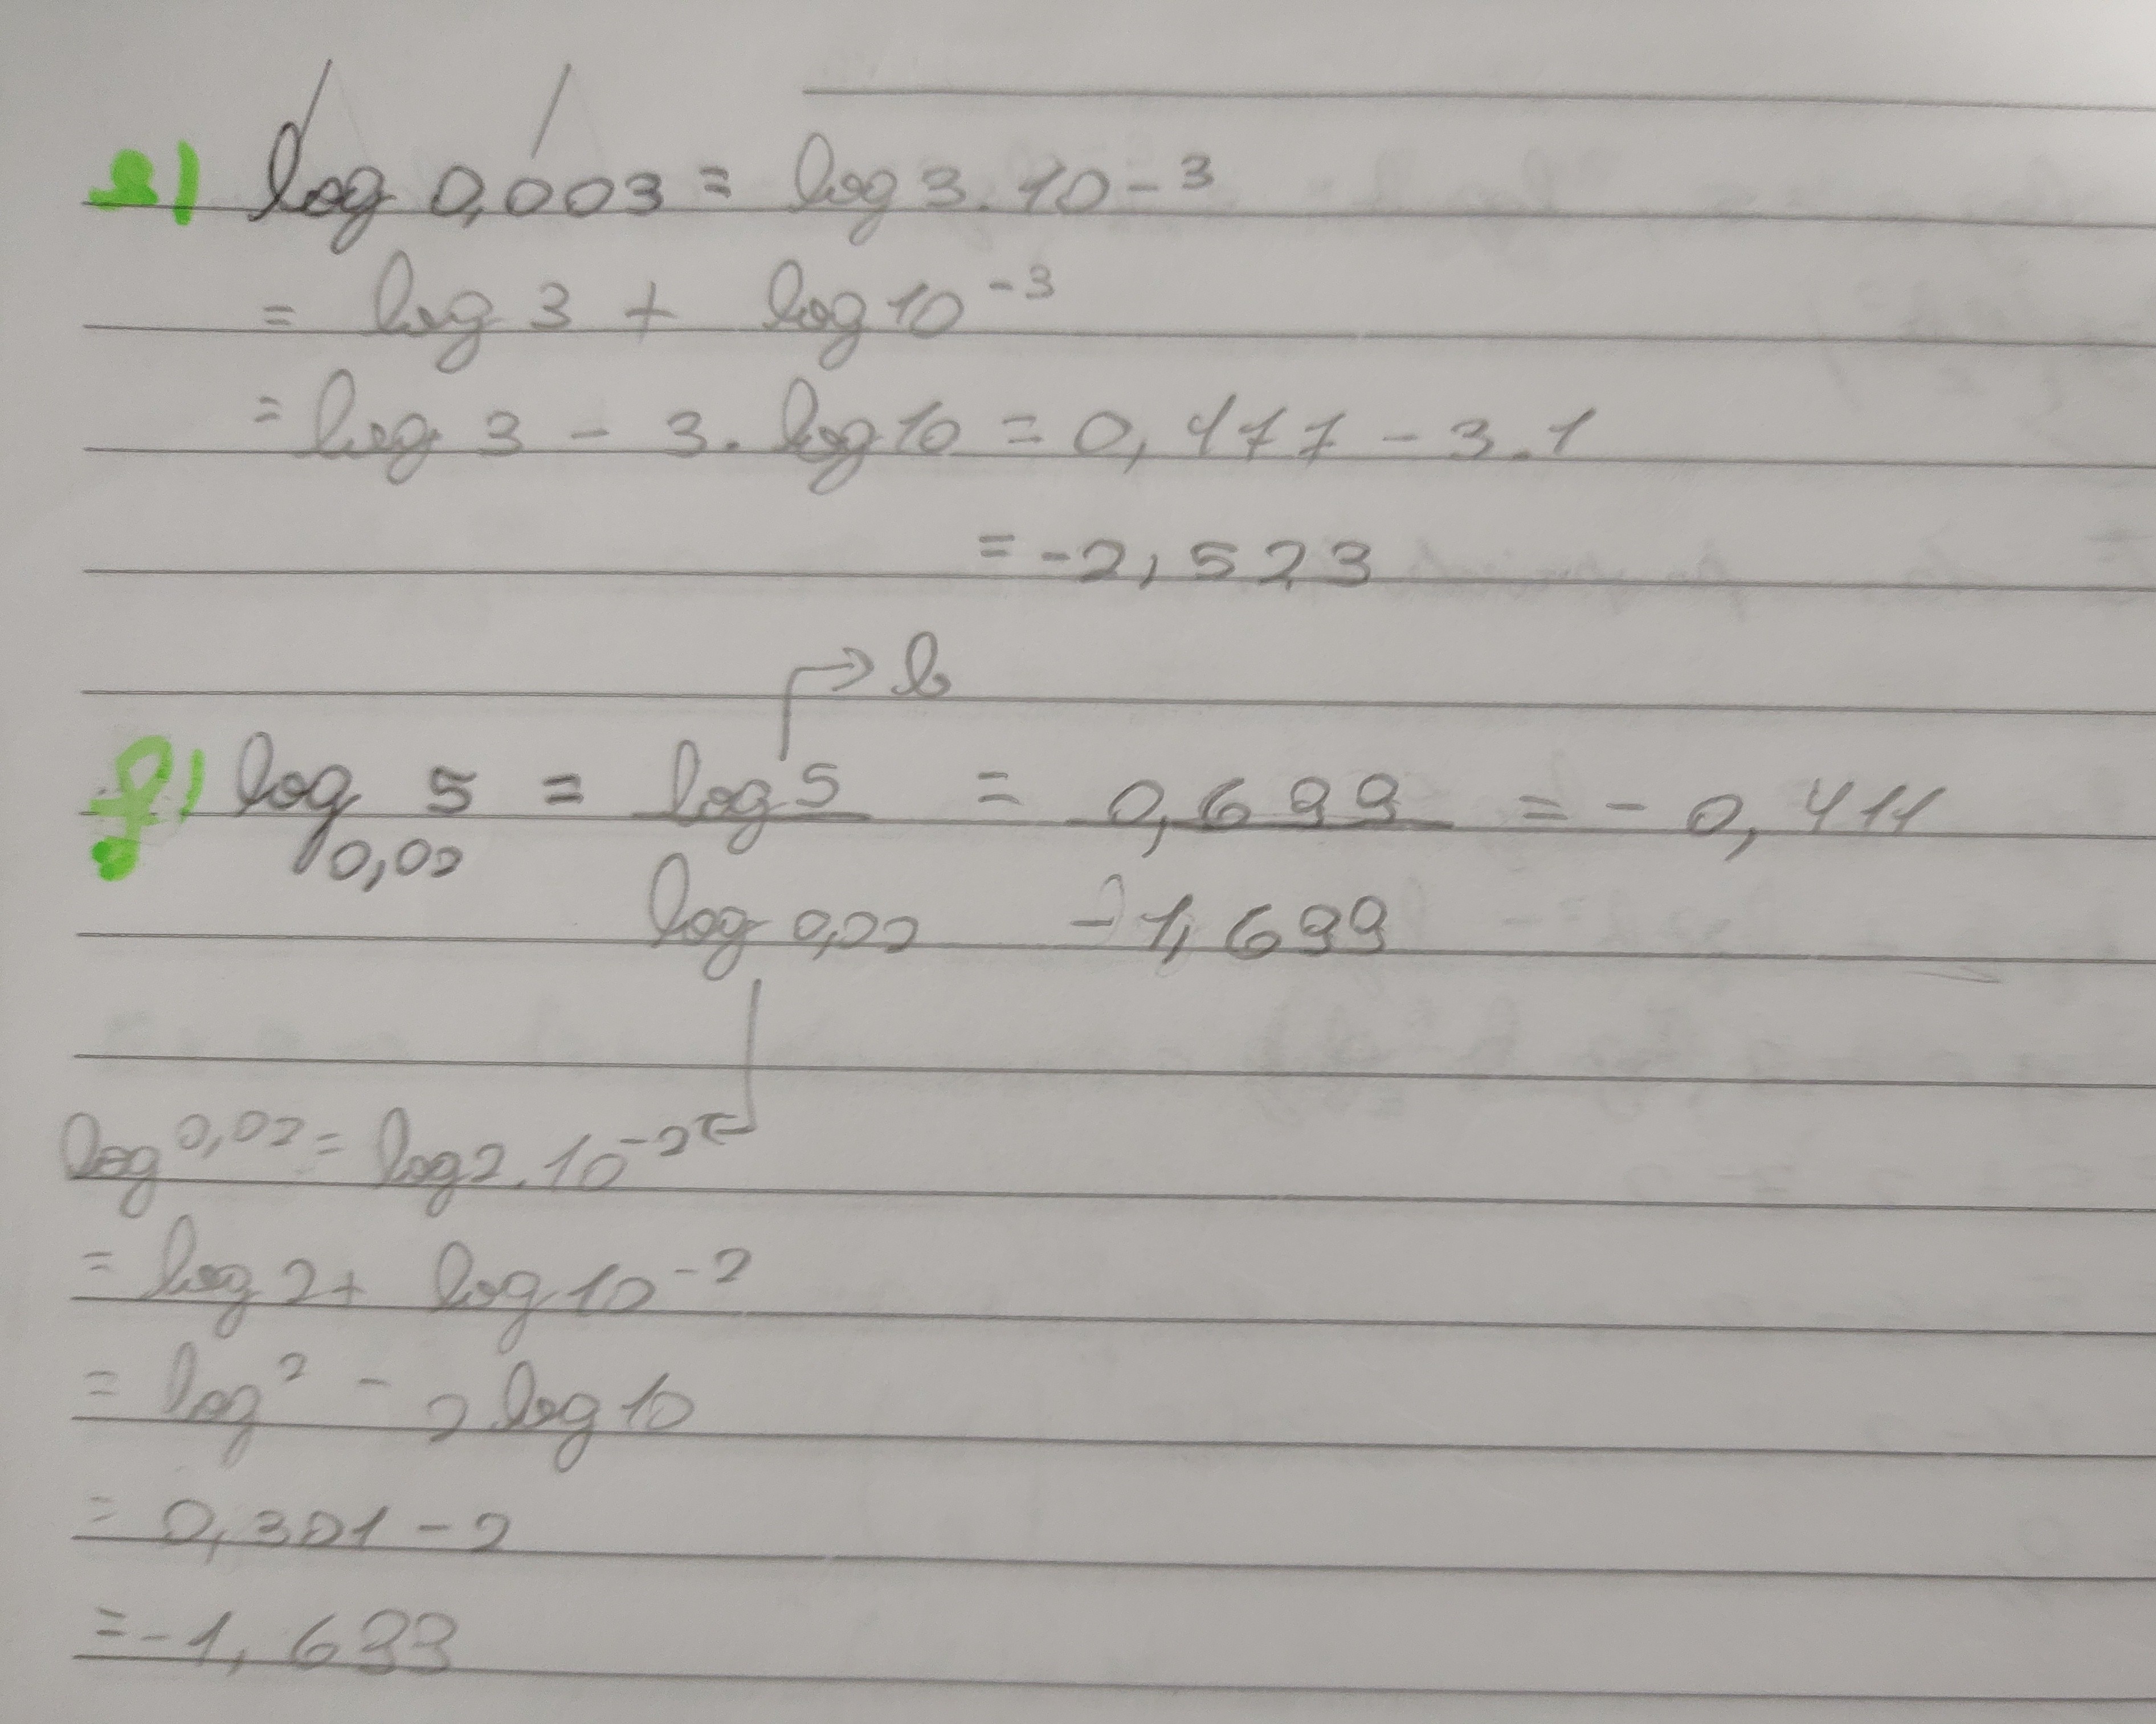 e) log 0,003 = log 3. 10-³
= log 3 + log 10⁻³
= log 3 - 3. log 10 = 0,477 - 3.1
= -2,523
→ b
f) log₀,₀₂ 5 = log 5 / log 0,02 = 0,699 / -1,699 = - 0,411
log 0,02 = log 2. 10⁻²
= log 2 + log 10⁻²
= log 2 - 2 log 10
= 0,301 - 2
= -1,699